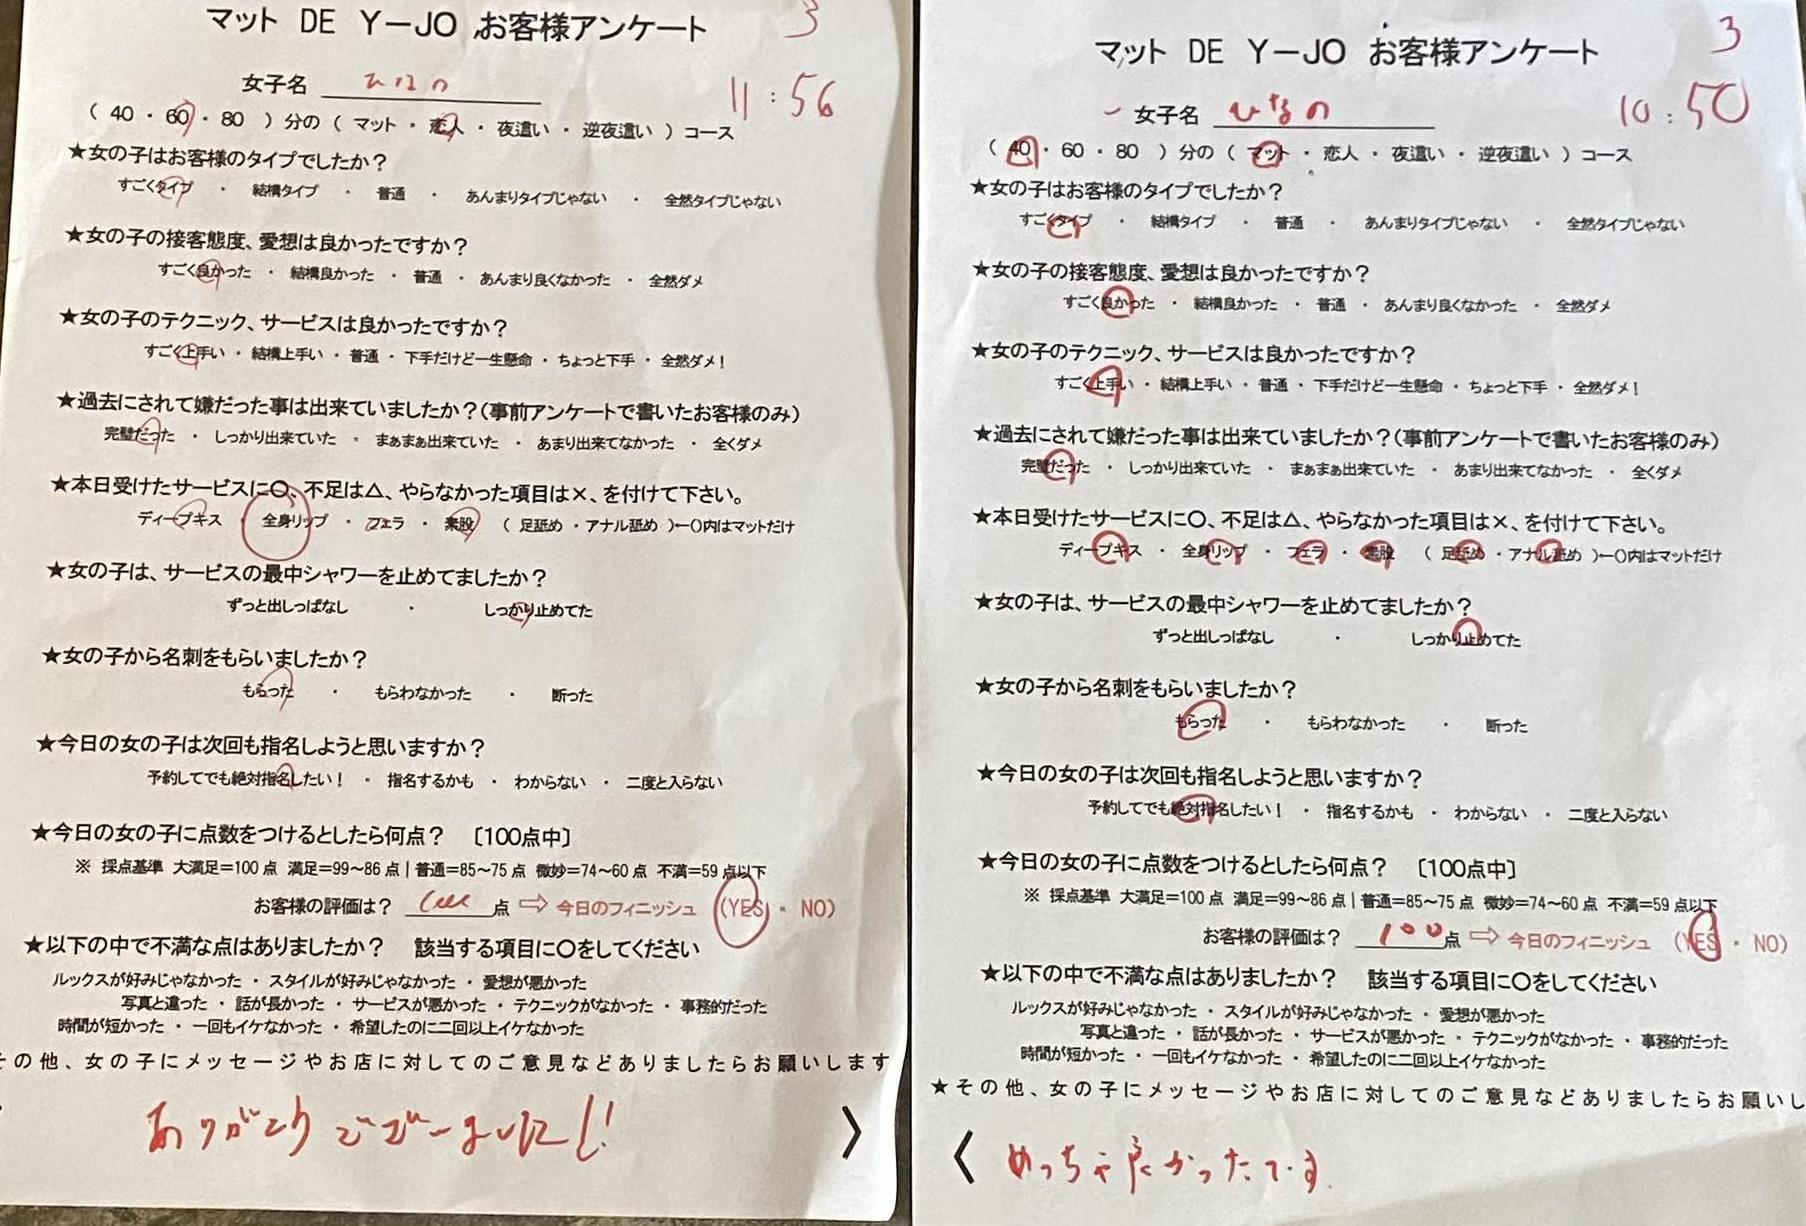 マット DE Y－JO お客様アンケート 3
女子名 ひなの 11：56
（ 40 ・ 60 ・ 80 ）分の（ マット ・ 恋人 ・ 夜這い ・ 逆夜這い ）コース
★女の子はお客様のタイプでしたか？
すごくタイプ ・ 結構タイプ ・ 普通 ・ あんまりタイプじゃない ・ 全然タイプじゃない
★女の子の接客態度、愛想は良かったですか？
すごく良かった ・ 結構良かった ・ 普通 ・ あんまり良くなかった ・ 全然ダメ
★女の子のテクニック、サービスは良かったですか？
すごく上手い ・ 結構上手い ・ 普通 ・ 下手だけど一生懸命 ・ ちょっと下手 ・ 全然ダメ！
★過去にされて嫌だった事は出来ていましたか？（事前アンケートで書いたお客様のみ）
完璧だった ・ しっかり出来ていた ・ まぁまぁ出来ていた ・ あまり出来てなかった ・ 全くダメ
★本日受けたサービスに〇、不足は△、やらなかった項目は×、を付けて下さい。
ディープキス ・ 全身リップ ・ フェラ ・ 素股 （ 足舐め ・アナル舐め ）←（）内はマットだけ
★女の子は、サービスの最中シャワーを止めてましたか？
ずっと出しっぱなし ・ しっかり止めてた
★女の子から名刺をもらいましたか？
もらった ・ もらわなかった ・ 断った
★今日の女の子は次回も指名しようと思いますか？
予約してでも絶対指名したい！ ・ 指名するかも ・ わからない ・ 二度と入らない
★今日の女の子に点数をつけるとしたら何点？ 〔100点中〕
※ 採点基準 大満足＝100 点 満足＝99～86 点｜普通＝85～75 点 微妙＝74～60 点 不満＝59 点以下
お客様の評価は？ 点 ⇨ 今日のフィニッシュ （YES ・ NO）
★以下の中で不満な点はありましたか？ 該当する項目に〇をしてください
ルックスが好みじゃなかった ・ スタイルが好みじゃなかった ・ 愛想が悪かった
写真と違った ・ 話が長かった ・ サービスが悪かった ・ テクニックがなかった ・ 事務的だった
時間が短かった ・ 一回もイケなかった ・ 希望したのに二回以上イケなかった
その他、女の子にメッセージやお店に対してのご意見などありましたらお願いします
ありがとうございました！ 〉
マット DE Y－JO お客様アンケート 3
女子名 ひなの 10：50
（ 40 ・ 60 ・ 80 ）分の（ マット ・ 恋人 ・ 夜這い ・ 逆夜這い ）コース
★女の子はお客様のタイプでしたか？
すごくタイプ ・ 結構タイプ ・ 普通 ・ あんまりタイプじゃない ・ 全然タイプじゃない
★女の子の接客態度、愛想は良かったですか？
すごく良かった ・ 結構良かった ・ 普通 ・ あんまり良くなかった ・ 全然ダメ
★女の子のテクニック、サービスは良かったですか？
すごく上手い ・ 結構上手い ・ 普通 ・ 下手だけど一生懸命 ・ ちょっと下手 ・ 全然ダメ！
★過去にされて嫌だった事は出来ていましたか？（事前アンケートで書いたお客様のみ）
完璧だった ・ しっかり出来ていた ・ まぁまぁ出来ていた ・ あまり出来てなかった ・ 全くダメ
★本日受けたサービスに〇、不足は△、やらなかった項目は×、を付けて下さい。
ディープキス ・ 全身リップ ・ フェラ ・ 素股 （ 足舐め ・ アナル舐め ）←（）内はマットだけ
★女の子は、サービスの最中シャワーを止めてましたか？
ずっと出しっぱなし ・ しっかり止めてた
★女の子から名刺をもらいましたか？
もらった ・ もらわなかった ・ 断った
★今日の女の子は次回も指名しようと思いますか？
予約してでも絶対指名したい！ ・ 指名するかも ・ わからない ・ 二度と入らない
★今日の女の子に点数をつけるとしたら何点？ 〔100点中〕
※ 採点基準 大満足＝100 点 満足＝99～86 点｜普通＝85～75 点 微妙＝74～60 点 不満＝59 点以下
お客様の評価は？ 100点 ⇨ 今日のフィニッシュ （YES ・ NO）
★以下の中で不満な点はありましたか？ 該当する項目に〇をしてください
ルックスが好みじゃなかった ・ スタイルが好みじゃなかった ・ 愛想が悪かった
写真と違った ・ 話が長かった ・ サービスが悪かった ・ テクニックがなかった ・ 事務的だった
時間が短かった ・ 一回もイケなかった ・ 希望したのに二回以上イケなかった
★その他、女の子にメッセージやお店に対してのご意見などありましたらお願いし
〈 めっちゃ良かったです